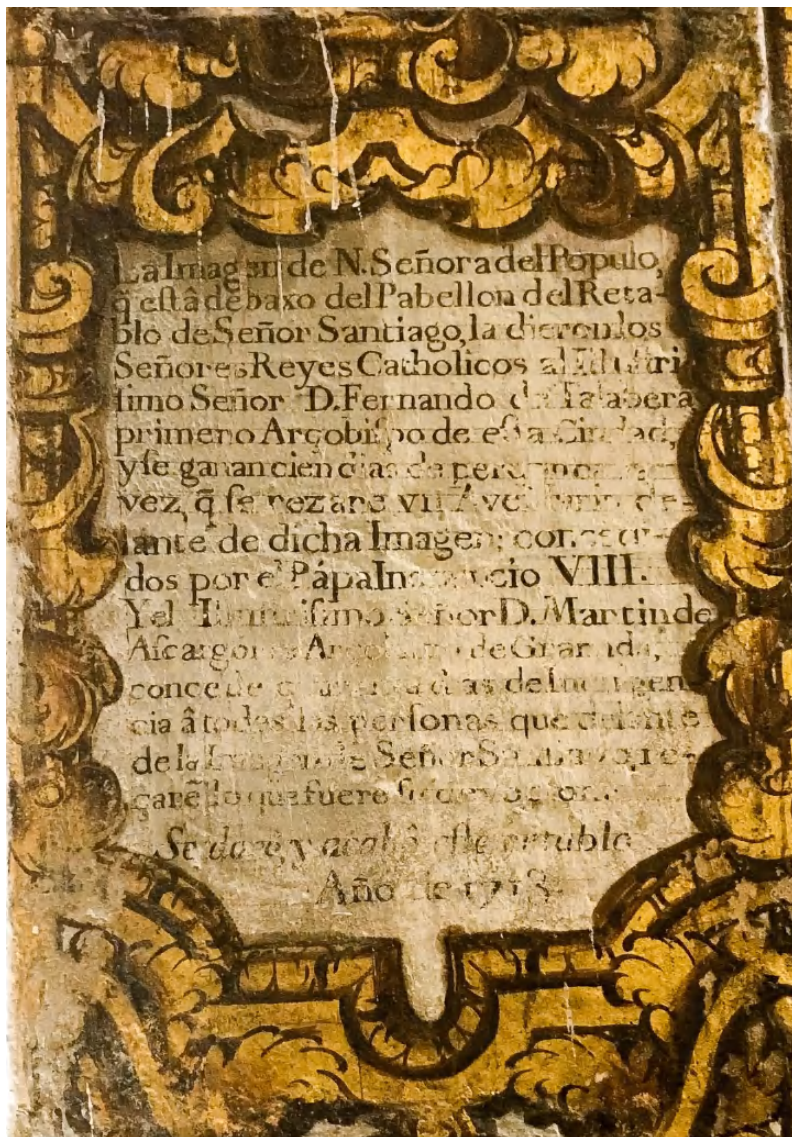 La Imagen de N. Señora del Populo,
q̃ estâ debaxo del Pabellon del Reta-
blo de Señor Santiago, la dieron los
Señores Reyes Catholicos al Illustri
simo Señor D. Fernando de Talabera
primero Arçobispo de esta Ciudad,
y se ganan cien dias de
vez, q̃ se rezare VII Ave de-
lante de dicha Imagen; concedi-
dos por el Pápa Innocencio VIII.
Y el Illustrissimo Señor D. Martin de
Ascargorta Arçobispo de Granada,
concede quarenta dias de Indulgen
cia â todas las personas que delante
de la Imagen de Señor Santiago, re-
çarẽ lo que fuere su devocion.
Se dorò y acabò este retablo
Año de 1713